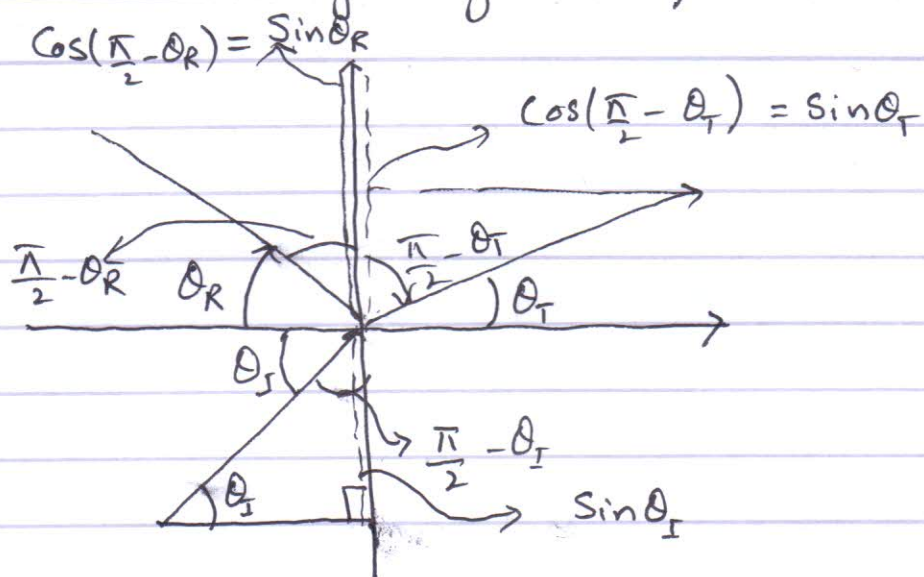 Cos(π/2 - θ_R) = Sinθ_R
Cos(π/2 - θ_T) = Sinθ_T
π/2 - θ_R
θ_R
π/2 - θ_T
θ_T
θ_I
π/2 - θ_I
θ_I
Sinθ_I